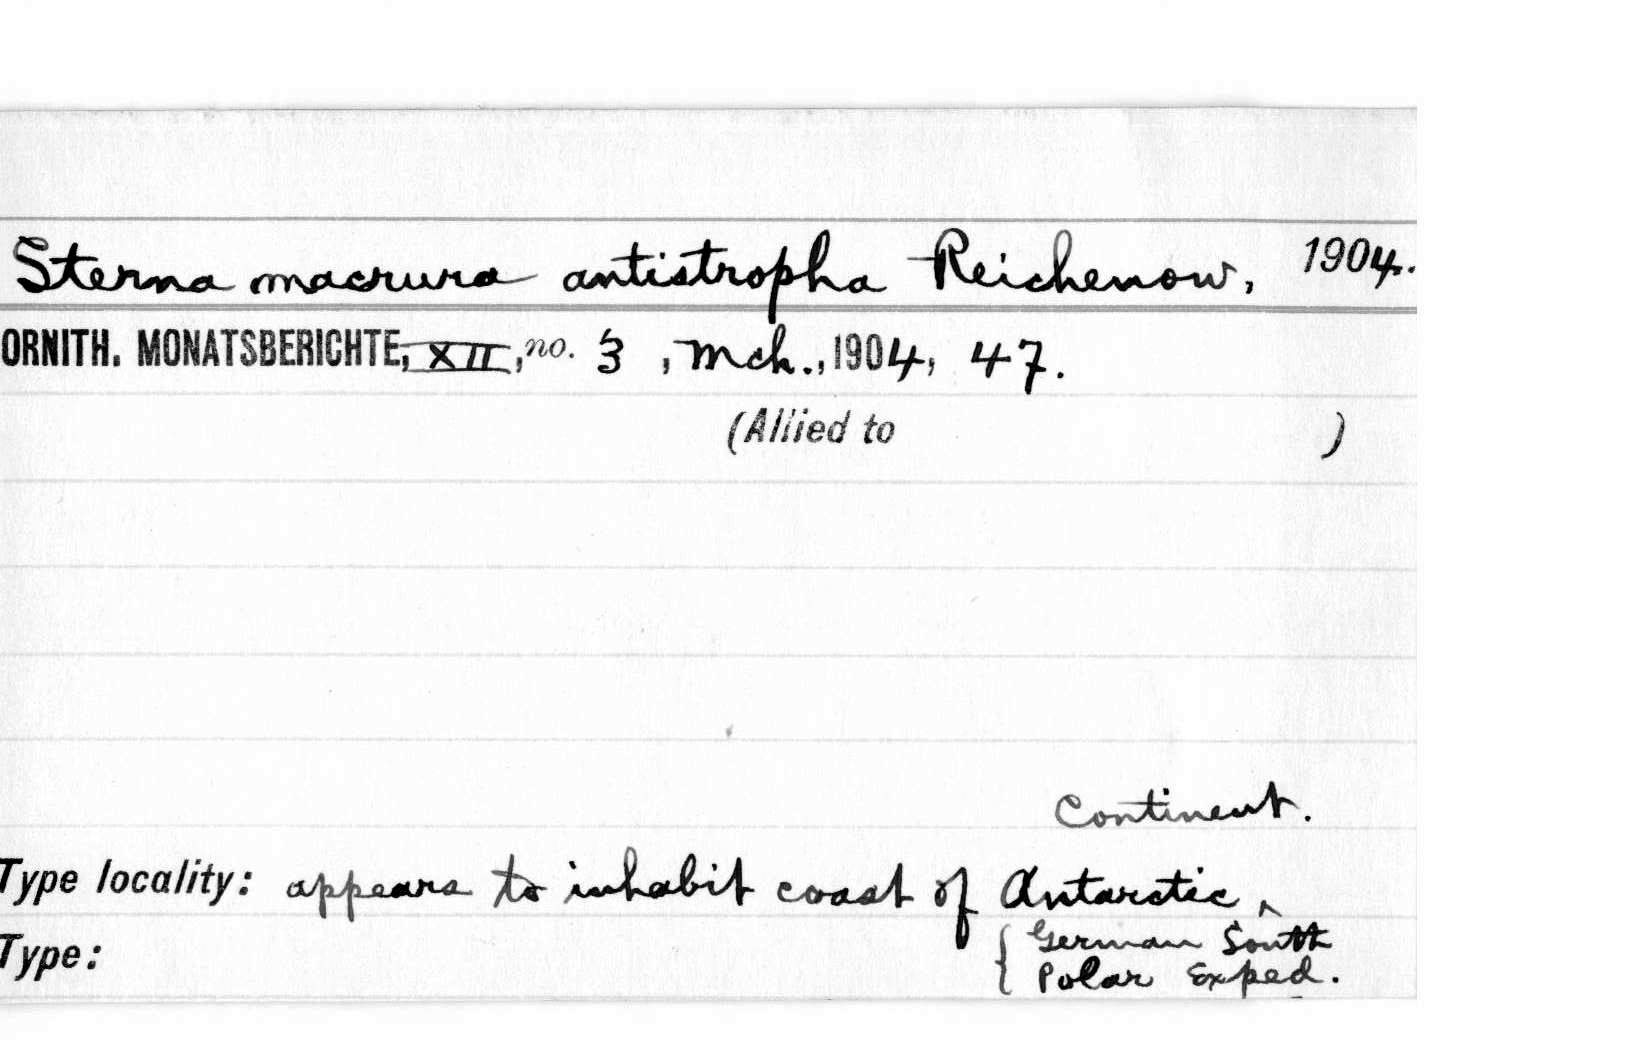 Sterna macrura antistropha Reichenow, 1904.
ORNITH. MONATSBERICHTE, XII, no. 3, Mch., 1904, 47.
(Allied to )
Continent.
Type locality: appears to inhabit coast of Antarctic ^
Type: { German South
Polar Exped.